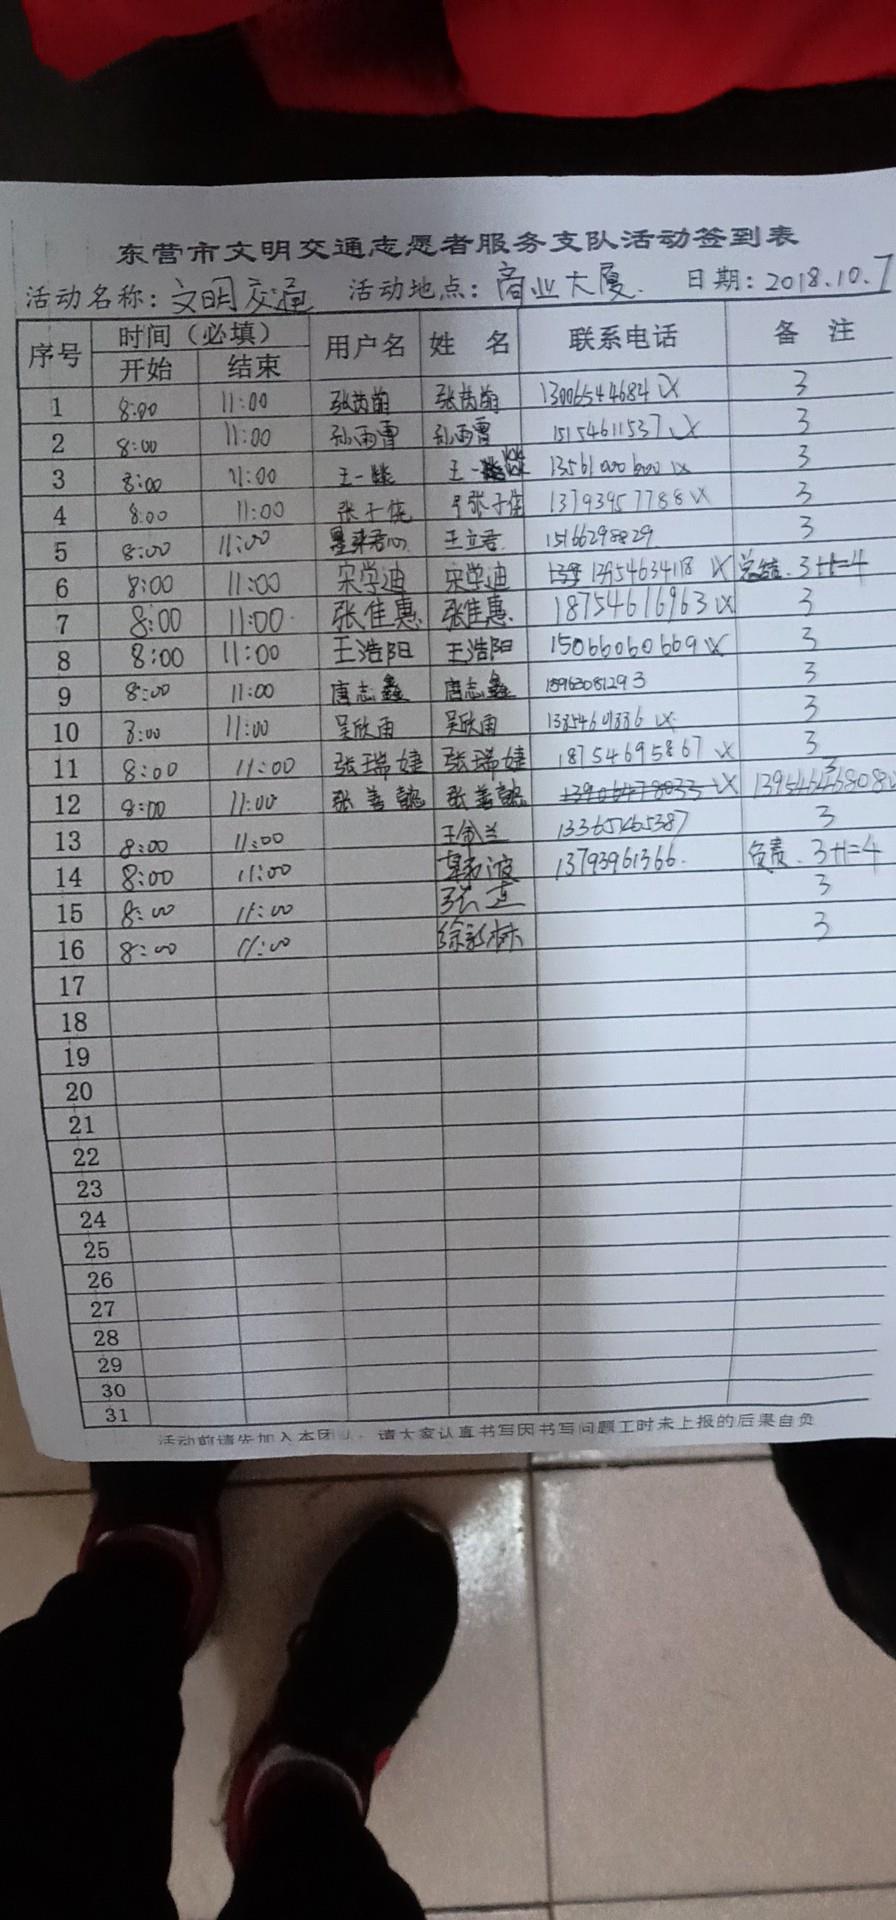 东营市文明交通志愿者服务支队活动签到表
活动名称：文明交通 活动地点：商业大厦. 日期：2018.10.7
序号 时间（必填） 用户名 姓 名 联系电话 备 注
开始 结束
1 8:00 11:00 张茜萌 张茜萌 13006544684 3
2 8:00 11:00 孙雨曹 孙雨曹 15154611537 3
3 8:00 11:00 王一 王一 13561000600 3
4 8:00 11:00 张子 张子 13793957788 3
5 8:00 11:00 王立君 15166298829 3
6 8:00 11:00 宋学迪 宋学迪 13954634118 总结. 3+1=4
7 8:00 11:00 张佳惠 张佳惠 18754616963 3
8 8:00 11:00 王浩阳 王浩阳 15066060669 3
9 8:00 11:00 唐志鑫 唐志鑫 15963081293 3
10 8:00 11:00 吴欣雨 吴欣雨 3
11 8:00 11:00 张瑞婕 张瑞婕 18754695867 3
12 8:00 11:00 张善懿 张善懿 13954646808 3
13 8:00 11:00 王 兰 13365465387 3
14 8:00 11:00 韩波 13793961366. 负责. 3+1=4
15 8:00 11:00 张 3
16 8:00 11:00 徐 林 3
17
18
19
20
21
22
23
24
25
26
27
28
29
30
31
活动前请先加入本团队，请大家认真书写因书写问题工时未上报的后果自负